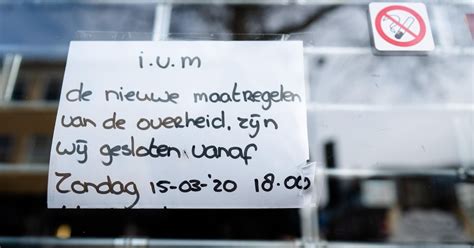 i.v.m
de nieuwe maatregelen
van de overheid, zijn
wij gesloten vanaf
Zondag 15-03-'20 18.00